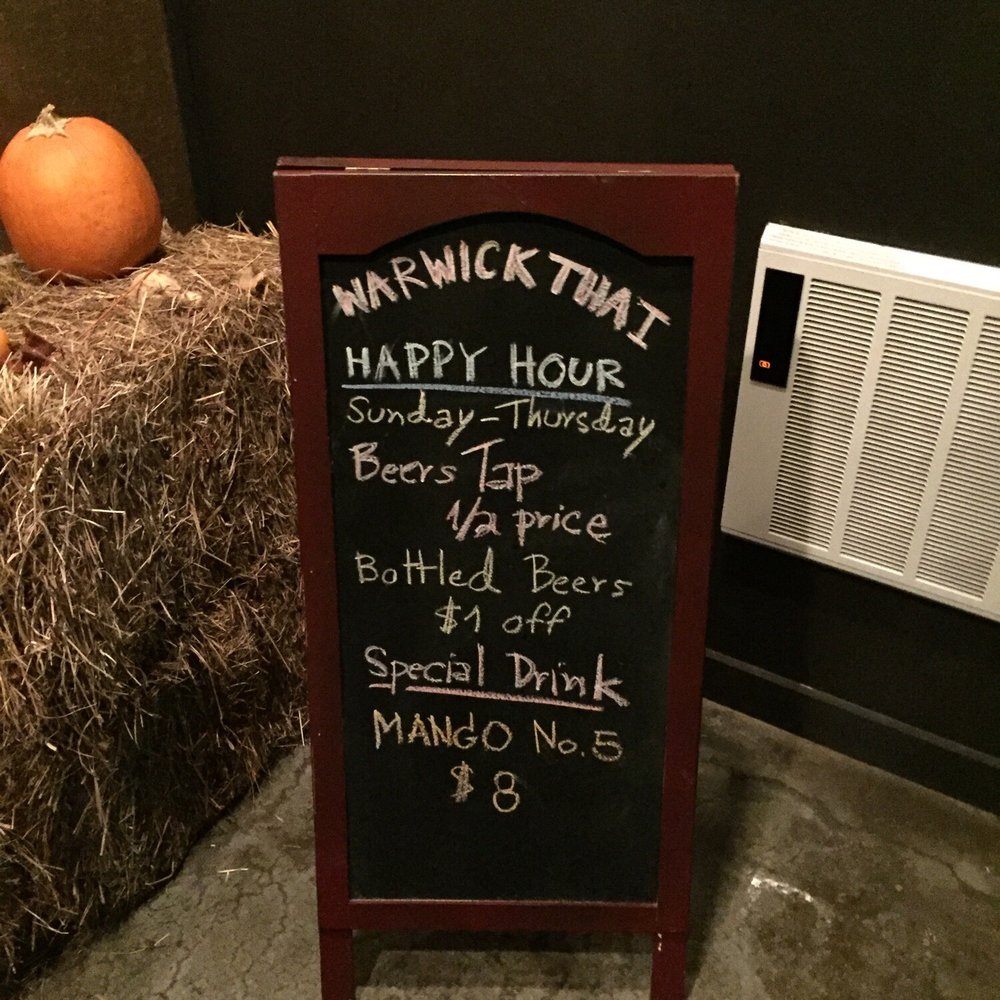 WARWICK THAI
HAPPY HOUR
Sunday - Thursday
Beers Tap
1/2 price
Bottled Beers
$1 off
Special Drink
MANGO No. 5
$ 8